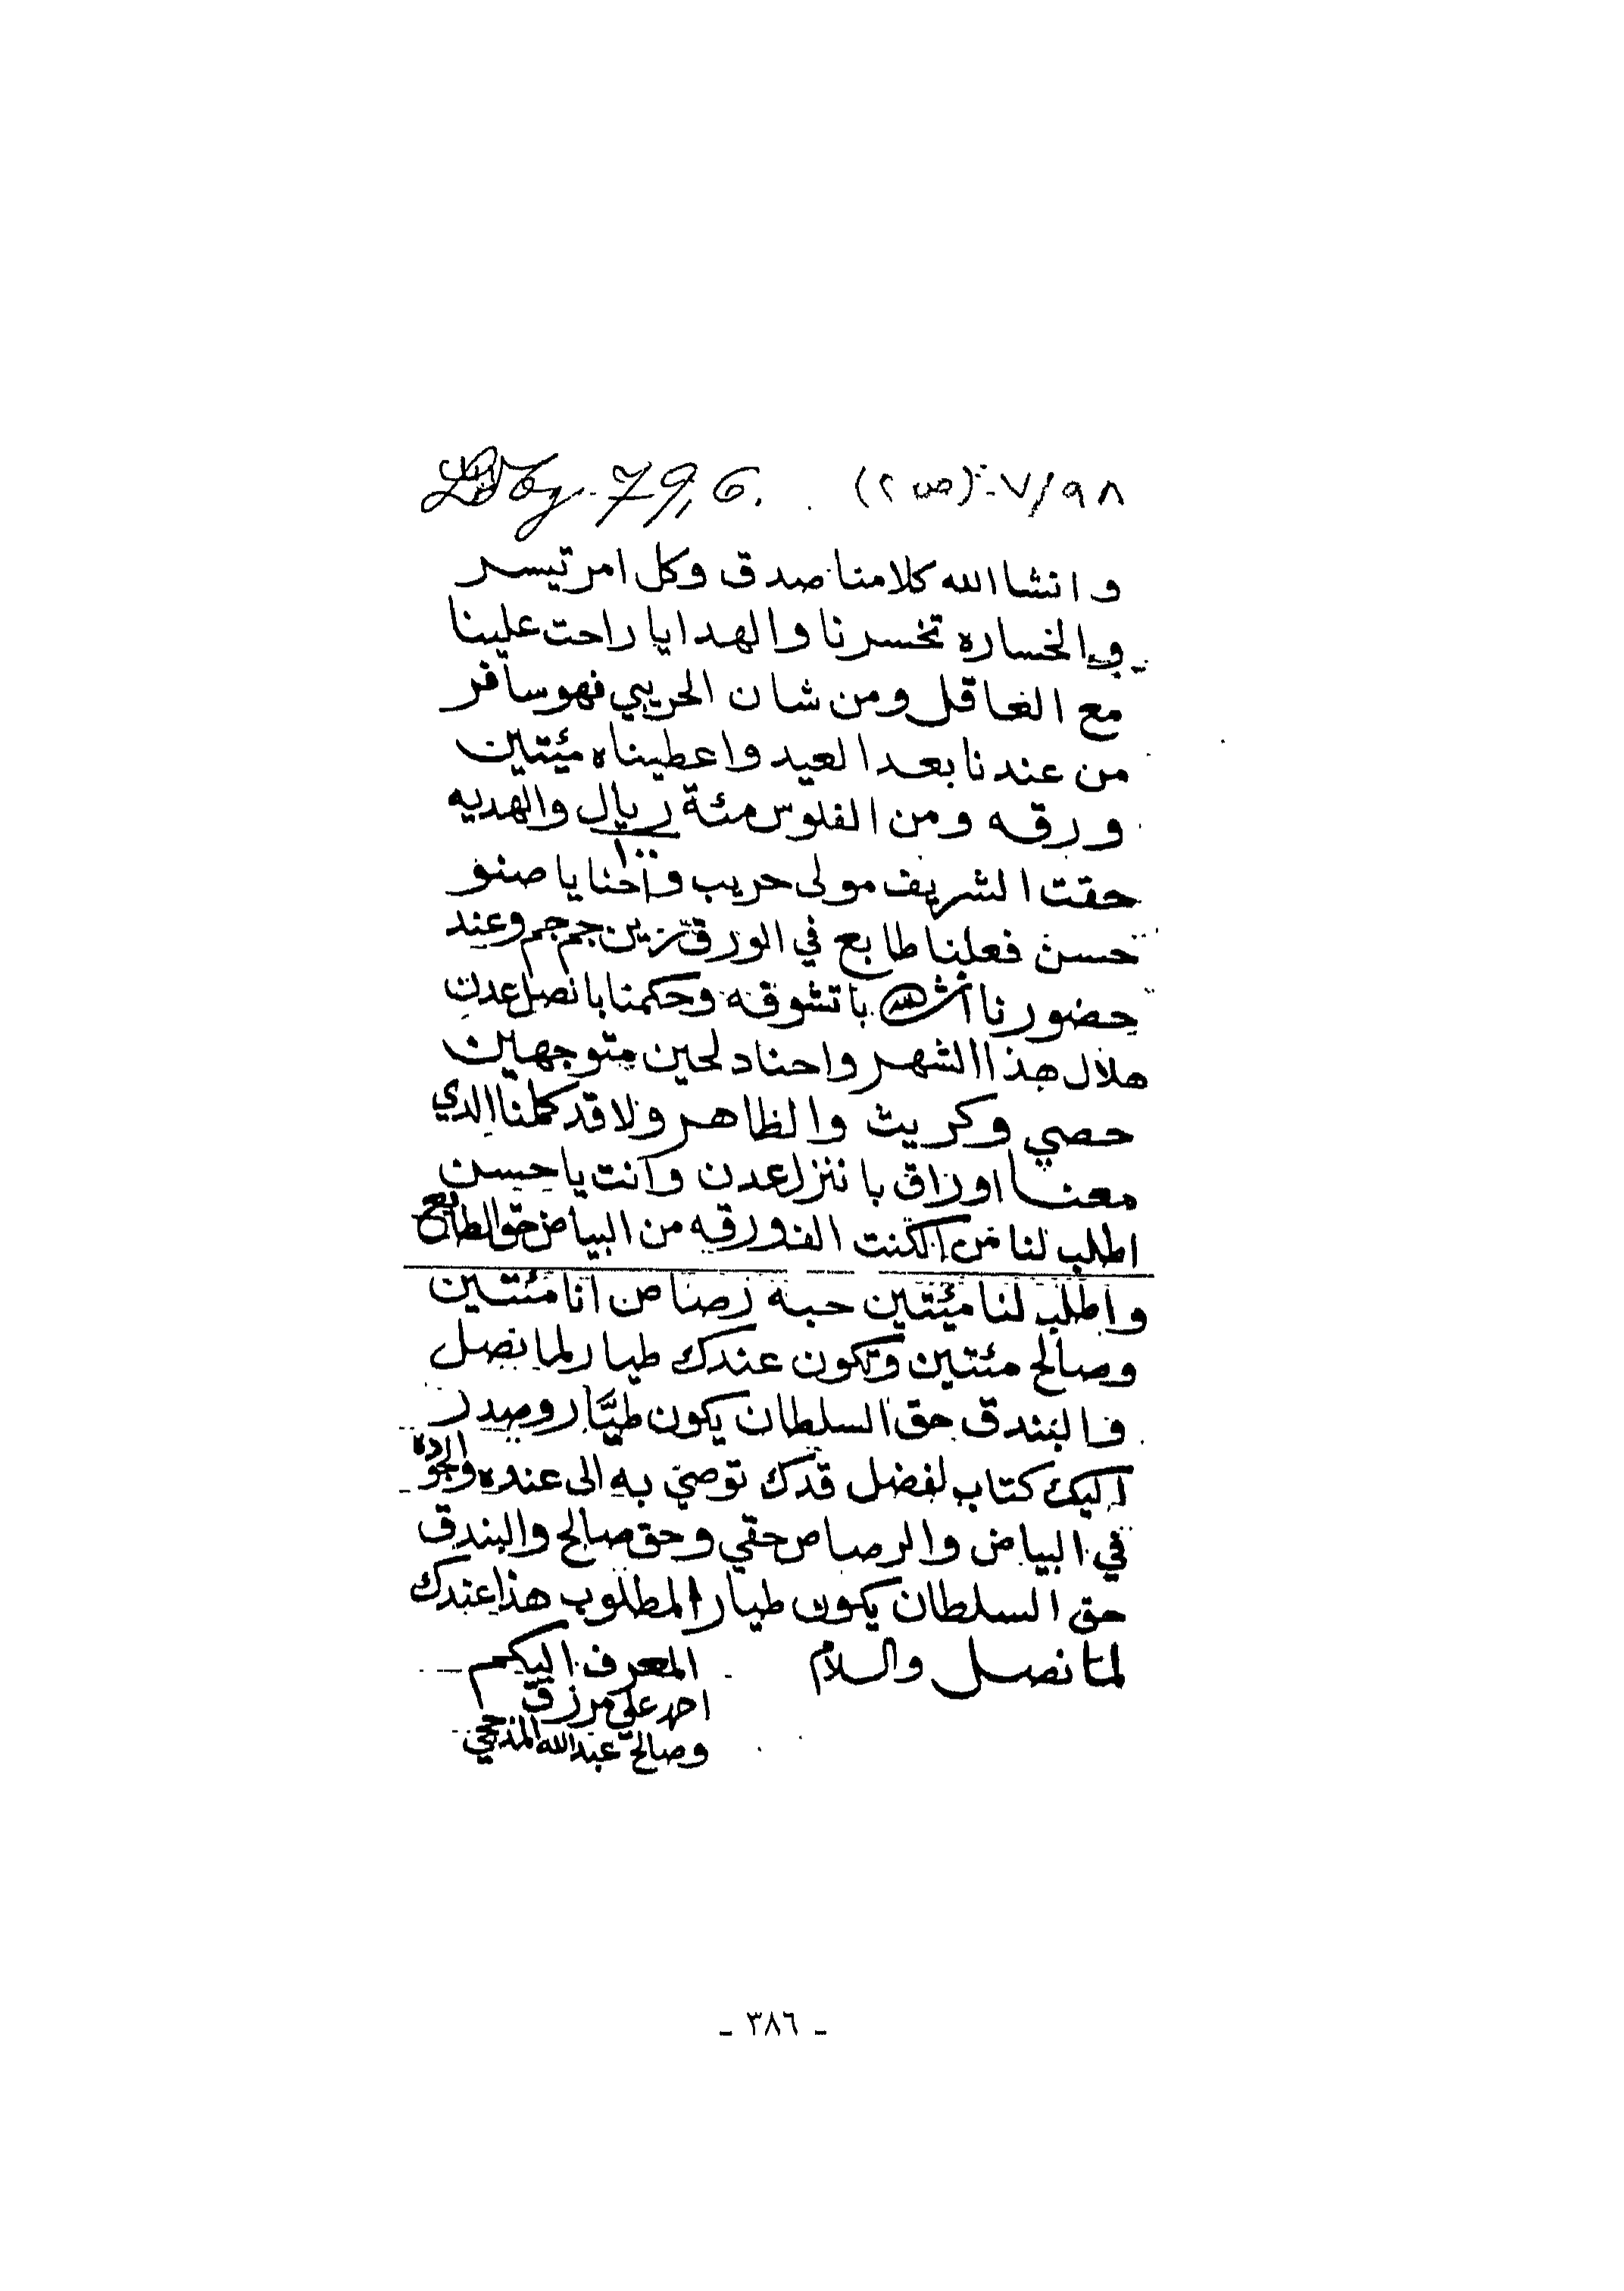 ٧/٩٨ :- (ص ٢) . LBbg. 79, 6.
وانشا الله كلامنا صدق وكل امر تيسر
والخساره تخسرنا والهدايا راحت علينا
مع العاقل ومن شان الحريبي فهو سافر
من عندنا بعد العيد واعطيناه ميئتين
ورقه ومن الفلوس مئة ريال والهديه
١٠٠
حقت الشريف مولى حريب واحنا يا صنو
حسن فعلنا طابع في الورق زين جم جم وعند
حضورنا انشالله باتشوفه وحكمنا بانصل عدن
هلال هذا الشهر واحنا دلحين متوجهين
حصي وكريث والظاهر ولا قد كملنا الدي
معنا اوراق باننزل عدن وانت يا حسن
اطلب لنا من الكنت الف ورقه من البياض حق الطابع
واطلب لنا ميئتين حبة رصاص انا مئتين
وصالح مئتين وتكون عندك طيار لما نصل
والبندق حق السلطان يكون طيّار وصدر
اليك كتاب لفضل قدك توصي به الى عنده والجوده
في البياض والرصاص حقي وحق صالح والبندق
حق السلطان يكون طيار المطلوب هذا عندك
لما نصل والسلام المعرف اليكم
احمد علي مرزق
وصالح عبدالله المذحجي
- ٣٨٦ -